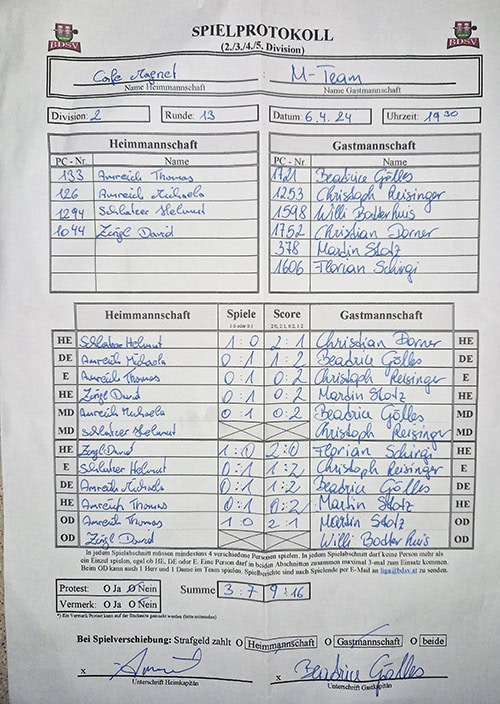 SPIELPROTOKOLL
(2./3./4./5. Division)
BDSV BDSV
Cafe Magnet : M-Team
Name Heimmannschaft Name Gastmannschaft
Division: 2 Runde: 13 Datum: 6.4.24 Uhrzeit: 19 30
Heimmannschaft Gastmannschaft
PC - Nr. Name PC - Nr. Name
133 Amreich Thomas 1721 Beatrice Gölles
126 Amreich Michaela 1253 Christoph Reisinger
1294 Schlatzer Helmut 1598 Willi
1044 David 1752 Christian Dorner
378 Martin Stotz
1606 Florian Schirgi
Heimmannschaft Spiele Score Gastmannschaft
1:0 oder 0:1 2:0, 2:1, 0:2, 1:2
HE Schlatzer Helmut 1:0 2:1 Christian Dorner HE
DE Amreich Michaela 0:1 1:2 Beatrice Gölles DE
E Amreich Thomas 0:1 0:2 Christoph Reisinger E
HE David 0:1 0:2 Martin Stotz HE
MD Amreich Michaela 0:1 0:2 Beatrice Gölles MD
MD Schlatzer Helmut Christoph Reisinger MD
HE David 1:0 2:0 Florian Schirgi HE
E Schlatzer Helmut 0:1 1:2 Christoph Reisinger E
DE Amreich Michaela 0:1 1:2 Beatrice Gölles DE
HE Amreich Thomas 0:1 0:2 Martin Stotz HE
OD Amreich Thomas 1:0 2:1 Martin Stotz OD
OD David Willi OD
In jedem Spielabschnitt müssen mindestens 4 verschiedene Personen spielen. In jedem Spielabschnitt darf keine Person mehr als
ein Einzel spielen, egal ob HE, DE oder E. Eine Person darf in beiden Abschnitten zusammen maximal 3-mal zum Einsatz kommen.
Beim OD kann auch 1 Herr und 1 Dame im Team spielen. Spielberichte sind nach Spielende per E-Mail an liga@bdsv.at zu senden.
Protest: O Ja O Nein Summe 3:7 9:16
Vermerk: O Ja O Nein
Bei Spielverschiebung: Strafgeld zahlt O Heimmannschaft O Gastmannschaft O beide
x x Beatrice Gölles
Unterschrift Heimkapitän Unterschrift Gastkapitän